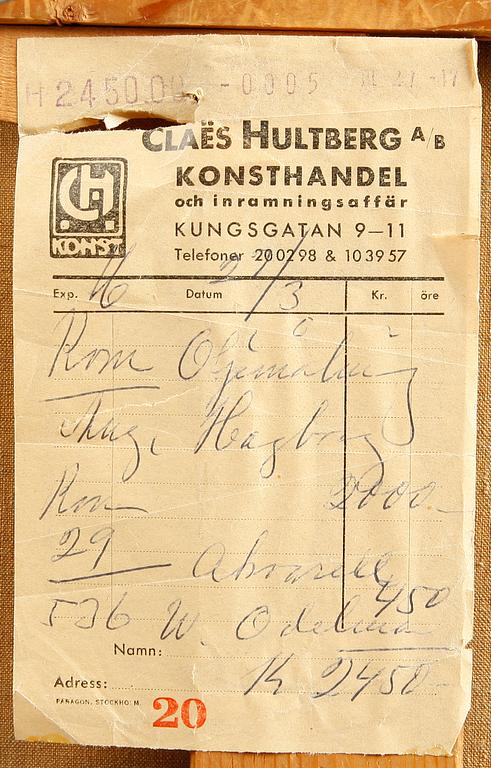 H 2450.00 -0005
CLAËS HULTBERG A/B
KONSTHANDEL
och inramningsaffär
KUNGSGATAN 9—11
Telefoner 200298 & 103957
CH
KONST
Exp. Datum 27/3 Kr. öre
Kom Oljemålning
Aug. Hagborg
Kom 2000-
29 Akvarell
536 W. Odelmark 450
Namn:
K 2450-
Adress:
PARAGON, STOCKHOLM
20